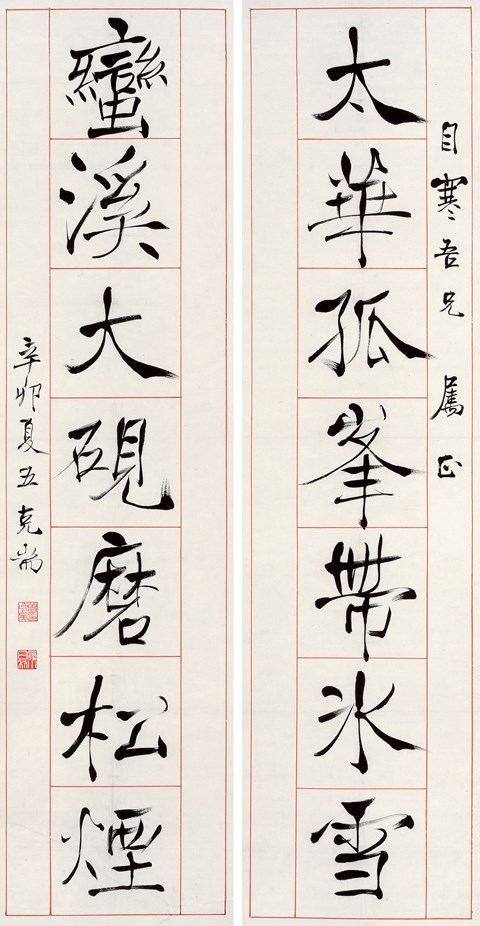 目寒吾兄 属正
太華孤峯帶冰雪
蠻溪大硯磨松煙
辛卯夏五克耑